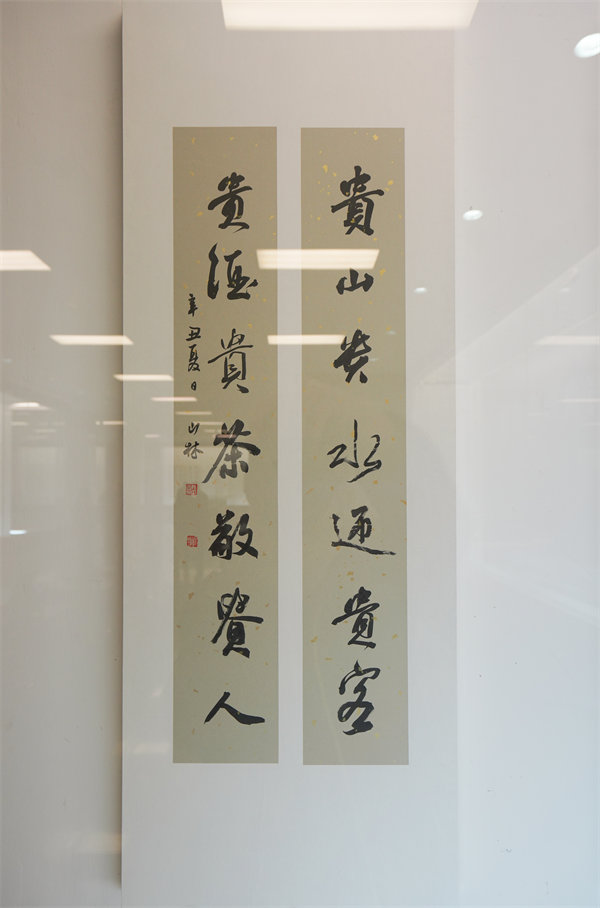 貴山貴水迎貴客
貴酒貴茶敬貴人
辛丑夏日 山林